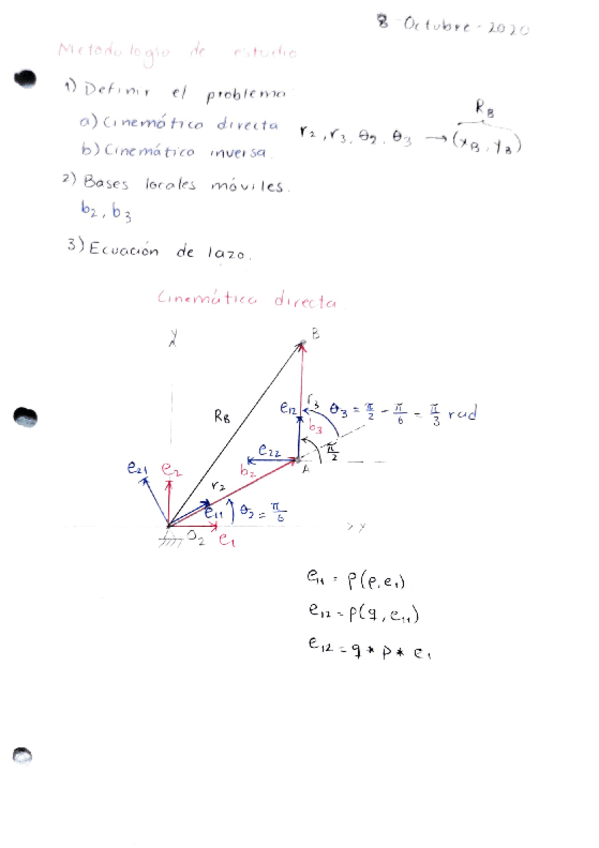 8 - Octubre - 2020
Metodología de estudio
1) Definir el problema
a) Cinemática directa r2, r3, θ2, θ3 → (xB, yB)
RB
b) Cinemática inversa.
2) Bases locales móviles.
b2, b3
3) Ecuación de lazo.
Cinemática directa
Y
B
RB
e12
r3
θ3 = π/2 - π/6 = π/3 rad
b3
π/2
e22
A
b2
e21
e2
r2
e11
θ2 = π/6
O2
e1
X
e11 = ρ(p, e1)
e12 = ρ(q, e11)
e12 = q * p * e1